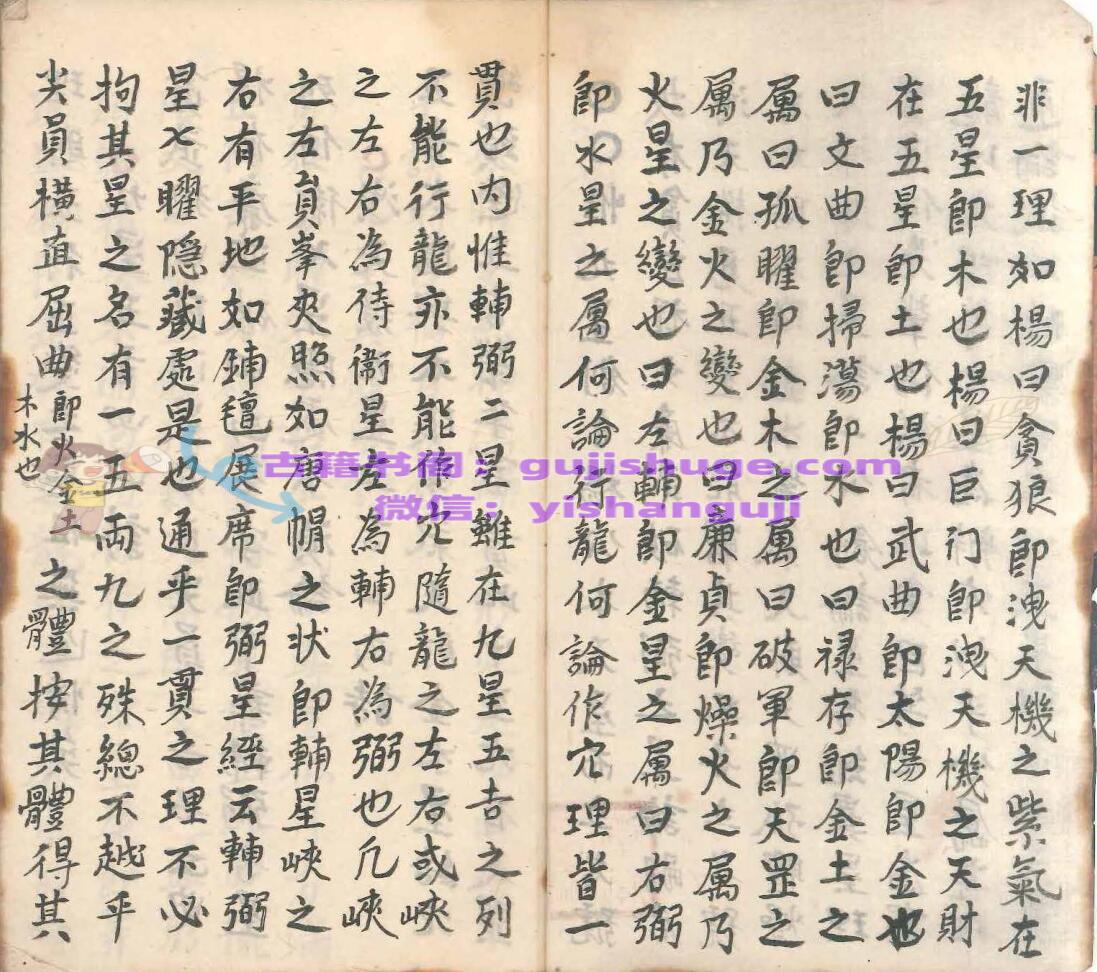 非一理如楊曰貪狼即洩天機之紫氣在
五星即木也楊曰巨门即洩天機之天財
在五星即土也楊曰武曲即太陽即金也
曰文曲即掃蕩即水也曰禄存即金土之
属曰孤曜即金木之属曰破軍即天罡之
属乃金火之變也曰廉貞即燥火之属乃
火星之變也曰左輔即金星之属曰右弼
即水星之属何論行龍何論作穴理皆一
貫也内惟輔弼二星雖在九星五吉之列
不能行龍亦不能作穴隨龍之左右或峽
之左右為待衛星左為輔右為弼也凡峽
之左右員峯夾照如唐帽之状即輔星峽之
右有平地如鋪氊展席即弼星經云輔弼
星七曜隠藏處是也通乎一貫之理不必
拘其星之名有一五両九之殊總不越乎
尖員横直屈曲即火金土木水也之體按其體得其
古籍书阁：gujishuge.com
微信：yishanguji